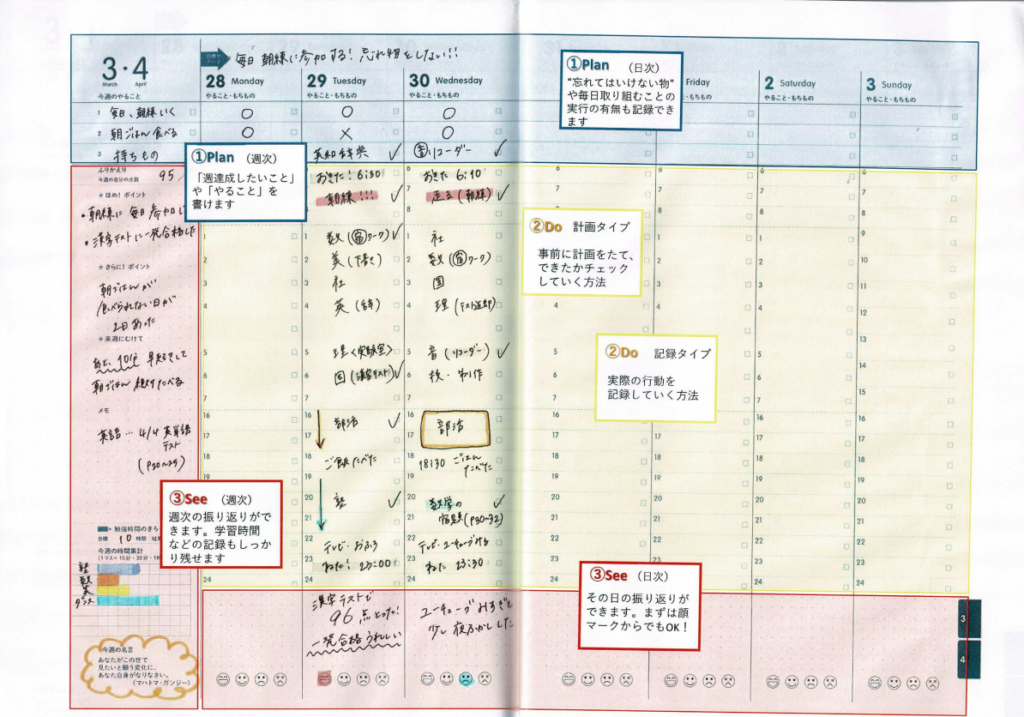 毎日 朝練に参加する! 忘れ物をしない!!
3・4
March April
28 Monday
29 Tuesday
30 Wednesday
Friday
2 Saturday
3 Sunday
今週のやること
やること・もちもの
やること・もちもの
やること・もちもの
やること・もちもの
やること・もちもの
1 毎日、朝練いく ○ ○ ○
2 朝ごはん食べる ○ × ○
3 持ちもの
英和辞典
リコーダー
①Plan (日次)
"忘れてはいけない物"
や毎日取り組むことの
実行の有無も記録でき
ます
①Plan (週次)
「週達成したいこと」
や「やること」を
書けます
ふりかえり
今週の自分の点数 95
★ほめ!ポイント
・朝練に 毎日 参加
・漢字テストに一発合格した
★さらに!ポイント
朝ごはんが
食べられない日が
2日あった
★来週にむけて
あと、10分 早起きして
朝ごはん
メモ
英語… 4/4 英単語
テスト
(P20~25)
おきた! 6:30
朝練!!!
数(宿 ワーク)
美(下書き)
社
英
理〈実験室〉
国(漢字テスト)
部活
ご飯たべた
塾
テレビ・おふろ
ねた! 23:00
おきた 6:10
(朝練)
社
数(宿 ワーク)
国
理
音(リコーダー)
技・制作
部活
18:30 ごはん
たべた
数学の
宿題(P30~32)
ねた 23:30
②Do 計画タイプ
事前に計画をたて、
できたかチェック
していく方法
②Do 記録タイプ
実際の行動を
記録していく方法
③See (週次)
週次の振り返りがで
きます。学習時間
などの記録もしっか
り残せます
③See (日次)
その日の振り返りが
できます。まずは顔
マークからでもOK!
勉強時間のきろ
目標 10 時間
今週の時間累計
数
英
漢字テストで
96点とった!
一発合格うれしい
ユーチューブみすぎて
少し夜ふかしした
今週の名言
あなたがこの世で
見たいと願う変化に、
あなた自身がなりなさい。
(マハトマ・ガンジー)
3
4